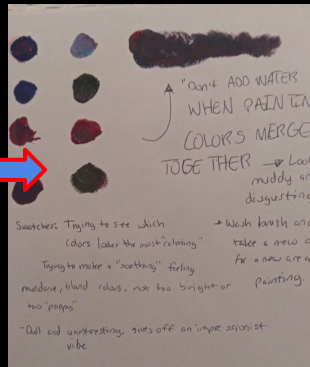 "Don't ADD WATER
WHEN PAINTIN
COLORS MERGE
TOGETHER → Loo
muddy an
disgustin
Swatches: Trying to see which
Colors looked the most "calming"
Trying to make a "soothing" feeling
mundane, bland colors, not too bright or
too "poppy"
-Dull and uninteresting, gives off an impressionist
vibe
→ Wash brush and
take a new c
for a new area
painting.